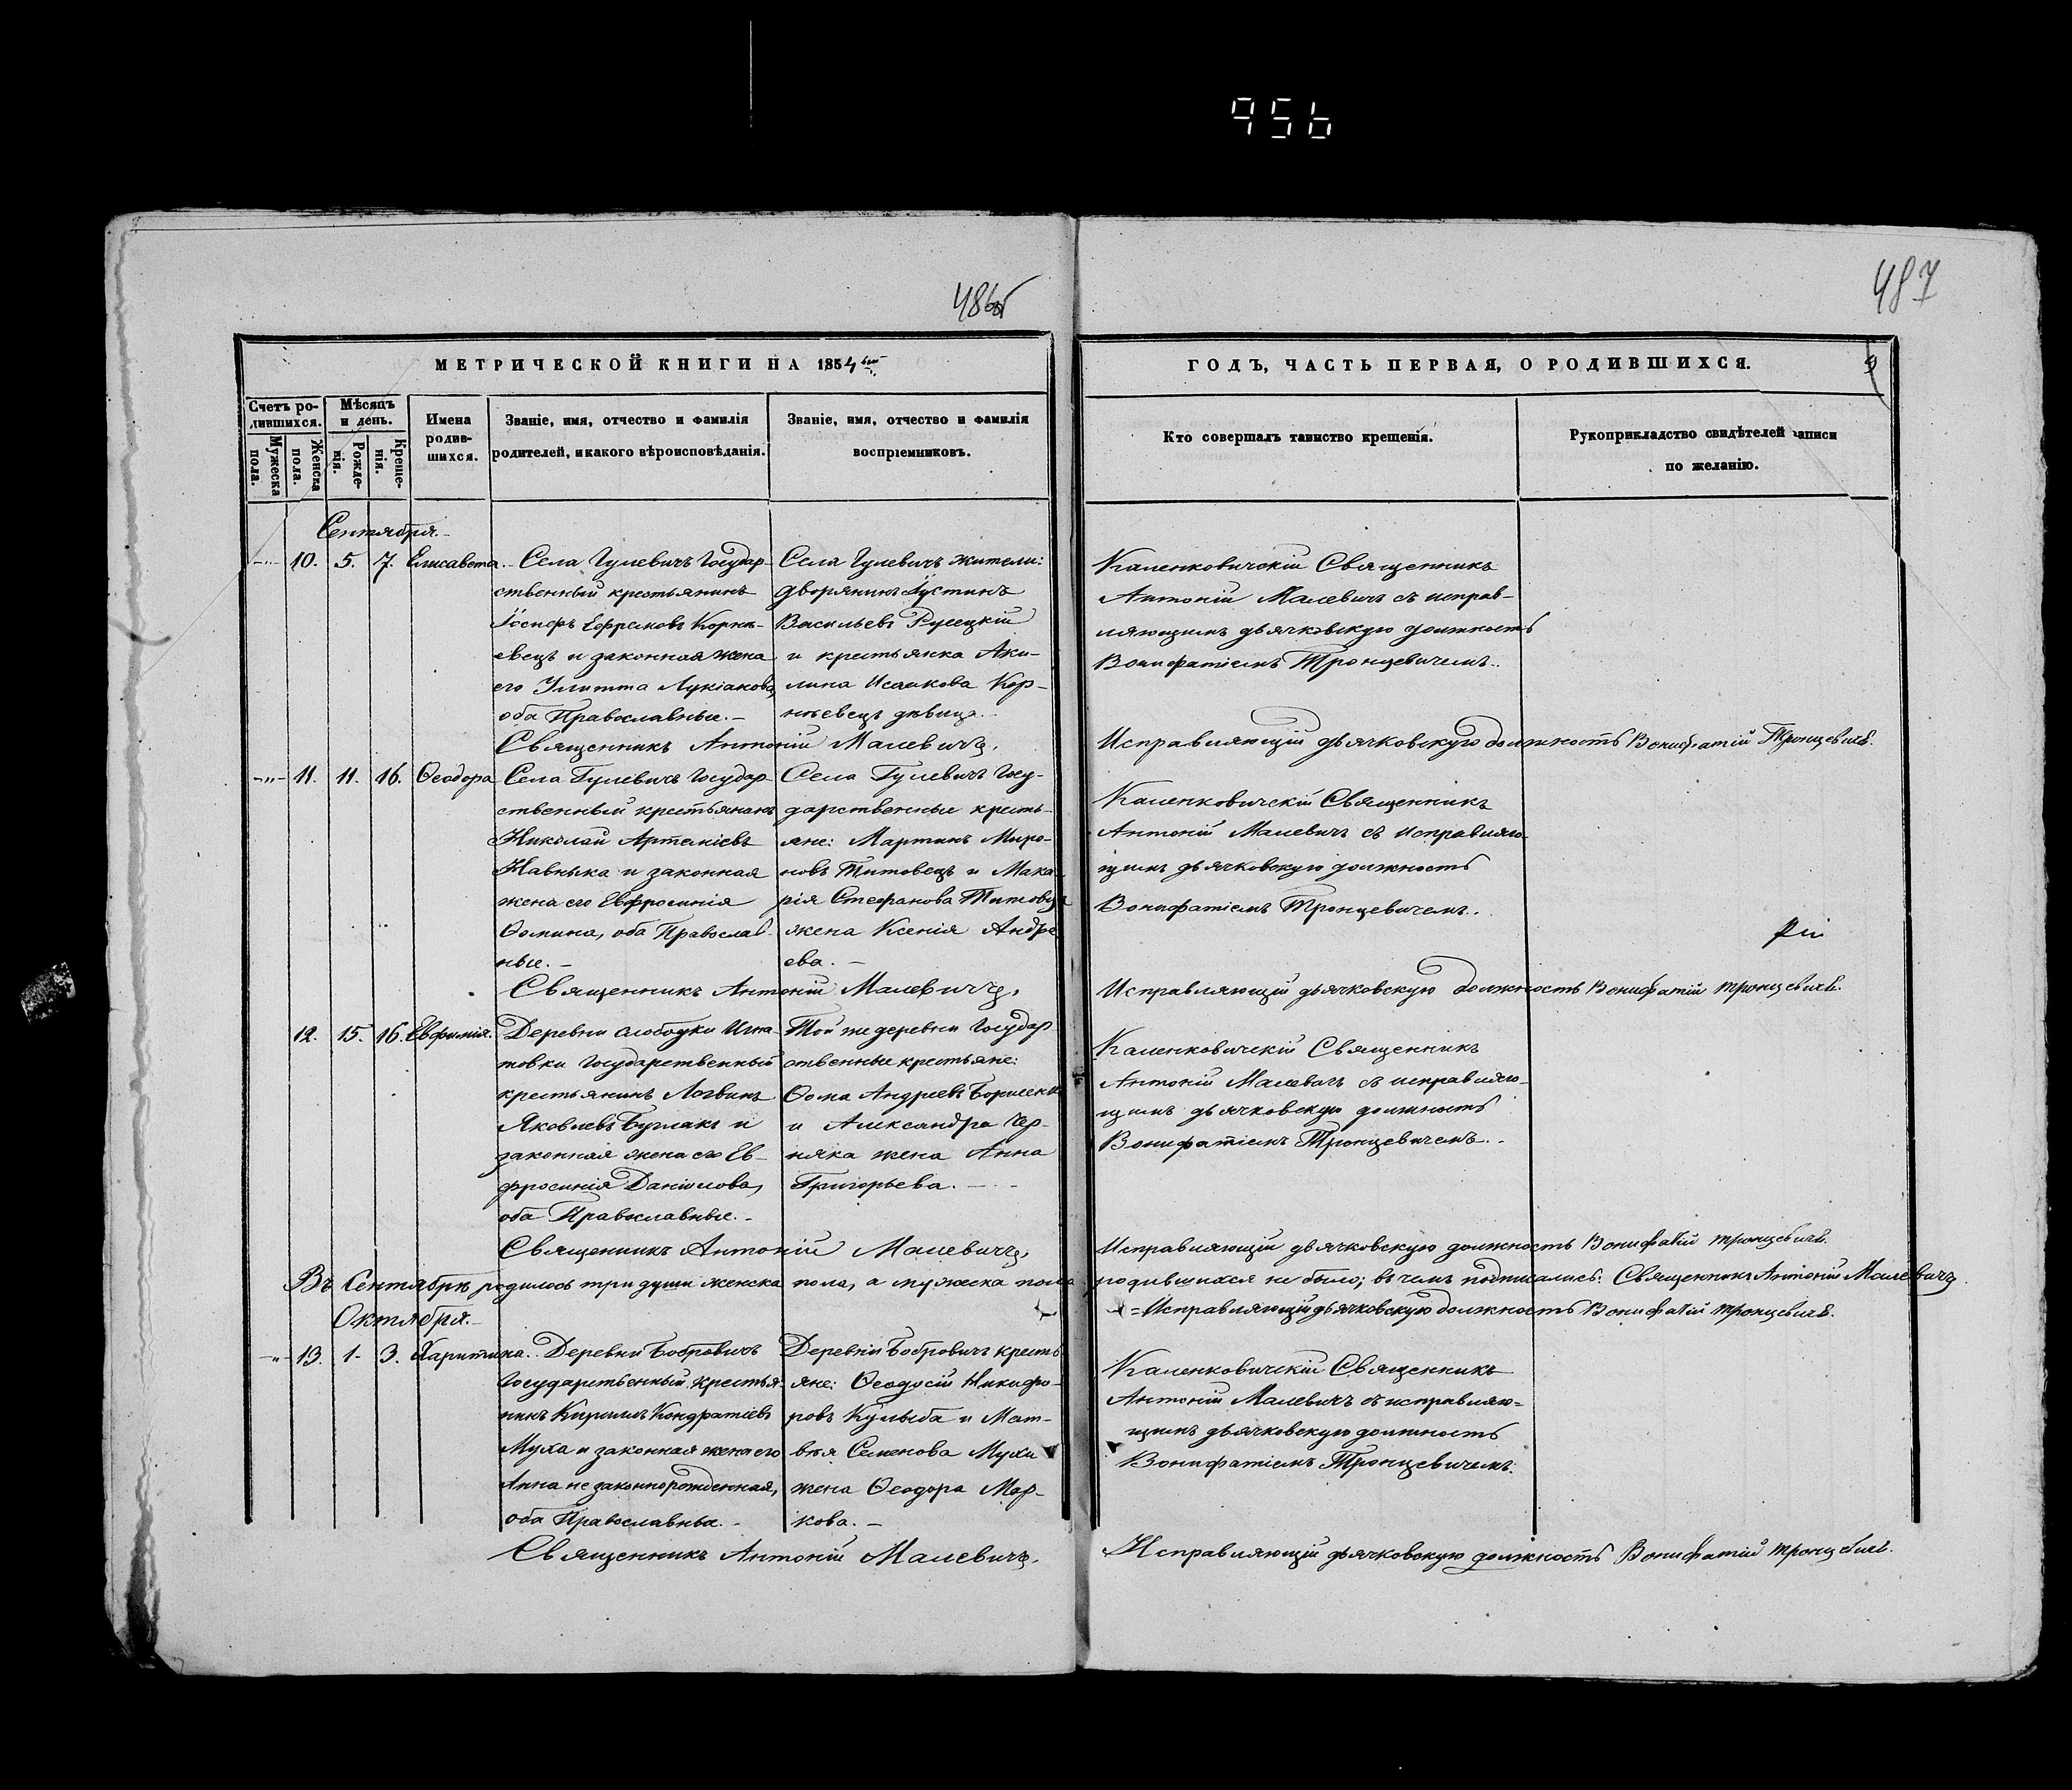 956
486об
487
МЕТРИЧЕСКОЙ КНИГИ НА 1854
ГОДЪ, ЧАСТЬ ПЕРВАЯ, О РОДИВШИХСЯ.
Счетъ родившихся.
Мужеска пола.
Женска пола.
Мѣсяцъ и день.
Рожденія.
Крещенія.
Имена родившихся.
Званіе, имя, отчество и фамилія
родителей, и какого вѣроисповѣданія.
Званіе, имя, отчество и фамилія
воспріемниковъ.
Кто совершалъ таинство крещенія.
Рукоприкладство свидѣтелей записи
по желанію.
Сентября.
10. 5. 7. Елисавета.
Села Гулевичъ Государ-
ственный крестьянинъ
Іосифъ Ефремовъ Корни-
евецъ и законная жена
его Улитта Лукіанова,
оба Православные.
Села Гулевичъ жители:
дворянинъ Іустинъ
Васильевъ Русецкій
и крестьянка Аки-
лина Исаакова Кор-
ніевецъ дѣвица.
Каленковичскій Священникъ
Антоній Малевичъ съ исправ-
ляющимъ дьячковскую должность
Вонифатіемъ Тронцевичемъ.
Священникъ Антоній Малевичъ.
Исправляющій дьячковскую должность Вонифатій Тронцевичъ.
11. 11. 16. Ѳеодора
Села Гулевичъ Государ-
ственный крестьянинъ
Николай Артеміевъ
Навныка и законная
жена его Евфросинія
Ѳомина, оба Православ-
ные.
Села Гулевичъ Госу-
дарственные кресть-
яне: Мартинъ Миро-
новъ Титовецъ и Мака-
рія Стефанова Титовца
жена Ксенія Андре-
ева.
Каленковичскій Священникъ
Антоній Малевичъ съ исправляю-
щимъ дьячковскую должность
Вонифатіемъ Тронцевичемъ.
Священникъ Антоній Малевичъ.
Исправляющій дьячковскую должность Вонифатій Тронцевичъ.
12. 15. 16. Евфимія.
Деревни Слободки Игна-
товки Государственный
крестьянинъ Логвинъ
Яковлевъ Буглакъ и
законная жена его Ев-
фросинія Даніилова,
оба Православные.
Той же деревни Государ-
ственные крестьяне:
Ѳома Андреевъ Борисенко
и Александра Чер-
няка жена Анна
Григорьева.
Каленковичскій Священникъ
Антоній Малевичъ съ исправляю-
щимъ дьячковскую должность
Вонифатіемъ Тронцевичемъ.
Священникъ Антоній Малевичъ.
Исправляющій дьячковскую должность Вонифатій Тронцевичъ.
Въ Сентябрѣ родилось три души женска пола, а мужеска пола родившихся не было; въ чемъ подписались: Священникъ Антоній Малевичъ.
Исправляющій дьячковскую должность Вонифатій Тронцевичъ.
Октября.
13. 1. 3. Харитина.
Деревни Бобровичъ
Государственный крестья-
нинъ Кириллъ Кондратіевъ
Муха и законная жена его
Анна незаконнорожденная,
оба Православны.
Деревни Бобровичъ кресть-
яне: Ѳеодосій Никифо-
ровъ Кулыба и Мат-
вѣя Семенова Мухи
жена Ѳеодора Мар-
кова.
Каленковичскій Священникъ
Антоній Малевичъ съ исправляю-
щимъ дьячковскую должность
Вонифатіемъ Тронцевичемъ.
Священникъ Антоній Малевичъ.
Исправляющій дьячковскую должность Вонифатій Тронцевичъ.